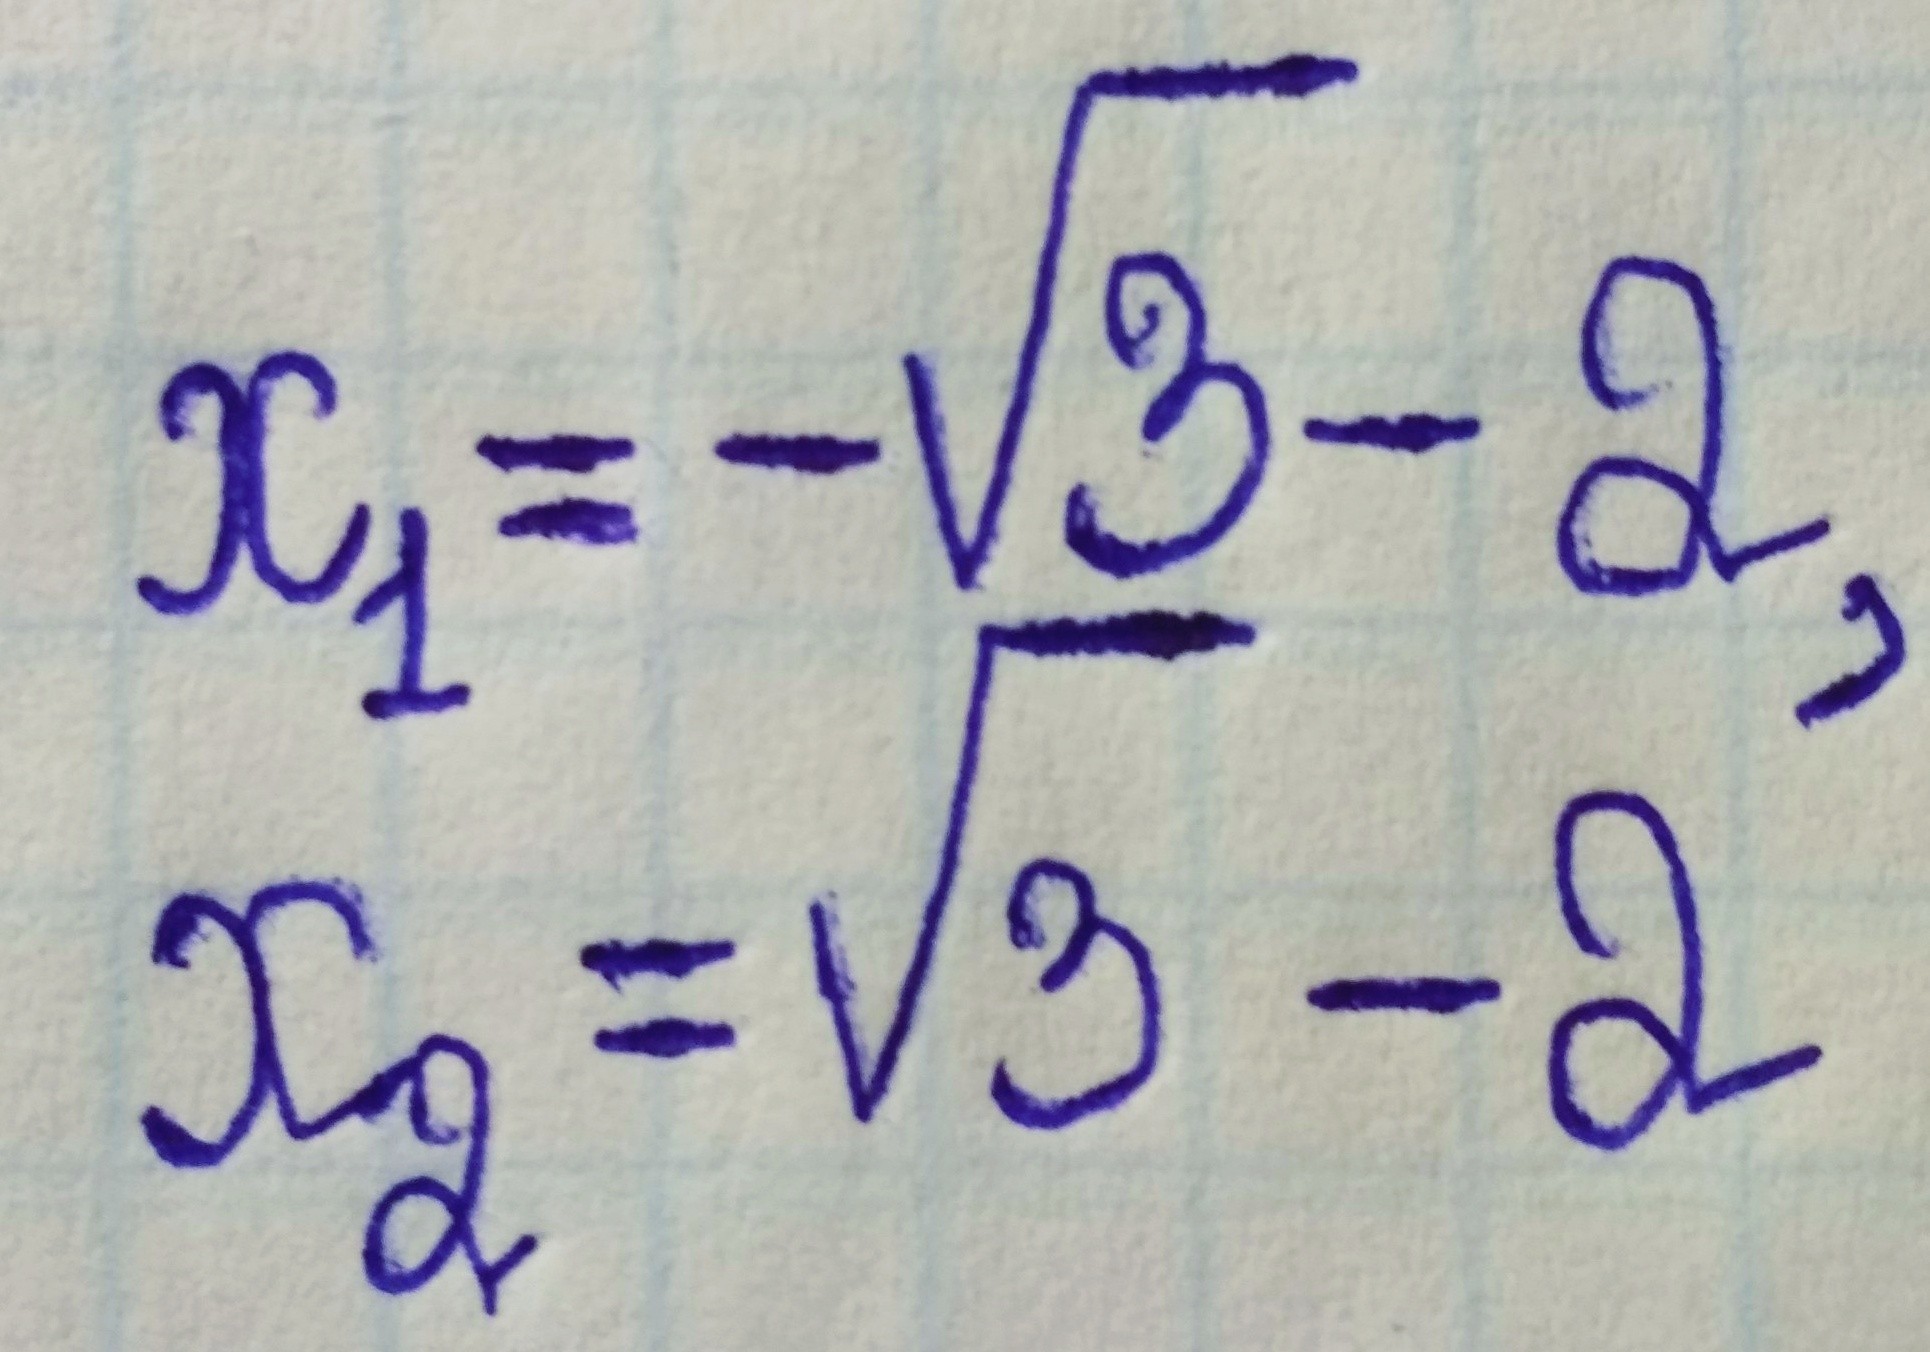 x₁ = -√3 - 2,
x₂ = √3 - 2